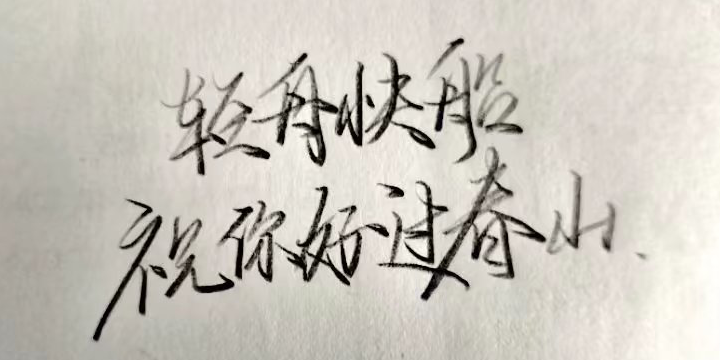 轻舟快船
祝你好过春山、